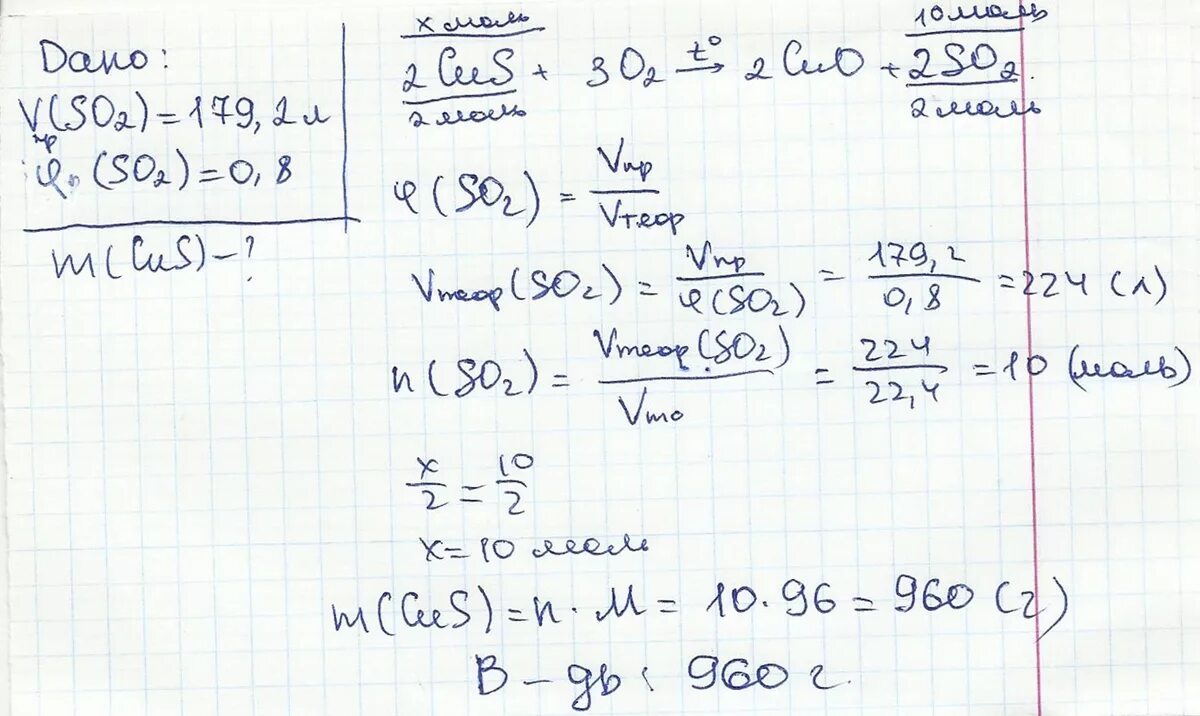 Дано:
V(SO₂) = 179,2 л
пр
φ (SO₂) = 0,8
m(CuS) – ?
x моль 10 моль
2 CuS + 3O₂ t° → 2 CuO + 2SO₂.
2 моль 2 моль
φ (SO₂) = Vпр / Vтеор
Vтеор (SO₂) = Vпр / φ(SO₂) = 179,2 / 0,8 = 224 (л)
n (SO₂) = Vтеор (SO₂) / Vmo = 224 / 22,4 = 10 (моль)
x/2 = 10/2
x = 10 моль
m(CuS) = n · M = 10 · 96 = 960 (г)
В – дь: 960 г.